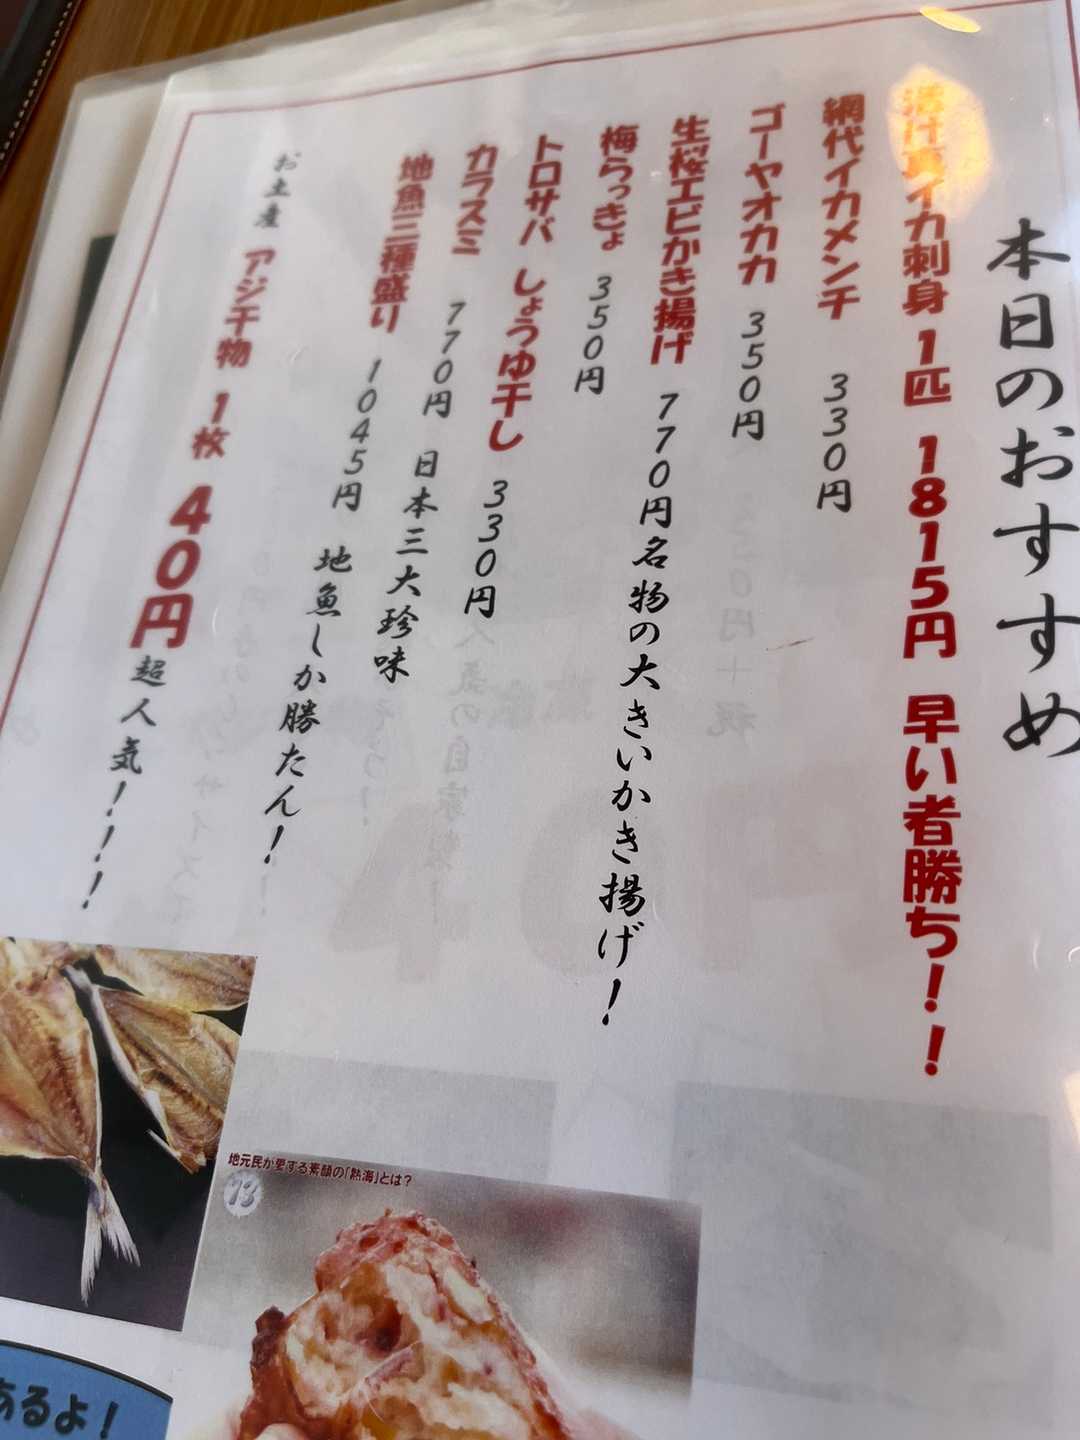 本日のおすすめ
活け真イカ刺身 1匹 1815円 早い者勝ち！！
網代イカメンチ 330円
ゴーヤオカカ 350円
生桜エビかき揚げ 770円名物の大きいかき揚げ！
梅らっきょ 350円
トロサバ しょうゆ干し 330円
カラスミ 770円 日本三大珍味
地魚三種盛り 1045円 地魚しか勝たん！
お土産 アジ干物 1枚 40円 超人気！！！
地元民が愛する素顔の「熱海」とは？
13
あるよ！